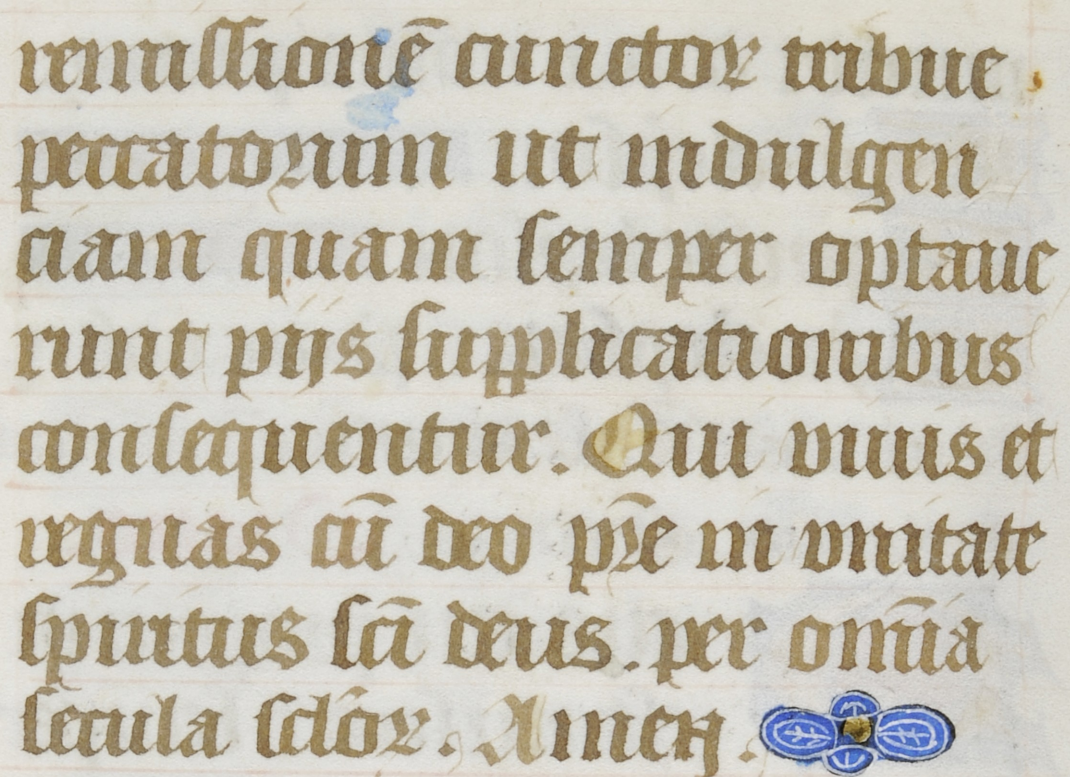 remissionē cunctoꝝ tribue
peccatorum ut indulgen
ciam quam semper optaue
runt pijs supplicationibus
consequentur. Qui viuis et
regnas cū deo pr̄e in vnitate
spiritus sc̄i deus. per om̄ia
secula sc̄loꝝ. Amen.